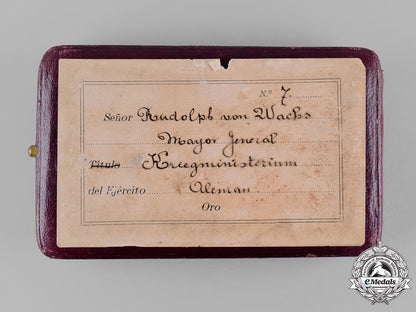 Nº 7
Señor Rudolph von Wachs
Mayor Jeneral
Título Kriegministerium
del Ejército Aleman
Oro
eMedals